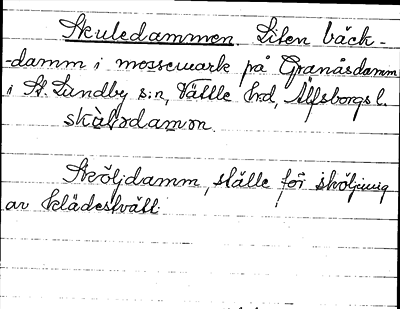 Skuledammen. Liten bäck-
-damm i mossemark på Granåsdamm
i St. Lundby s:n, Vättle hrd, Älfsborgs l.
Sköljdamm, ställe för sköljning
av klädestvätt